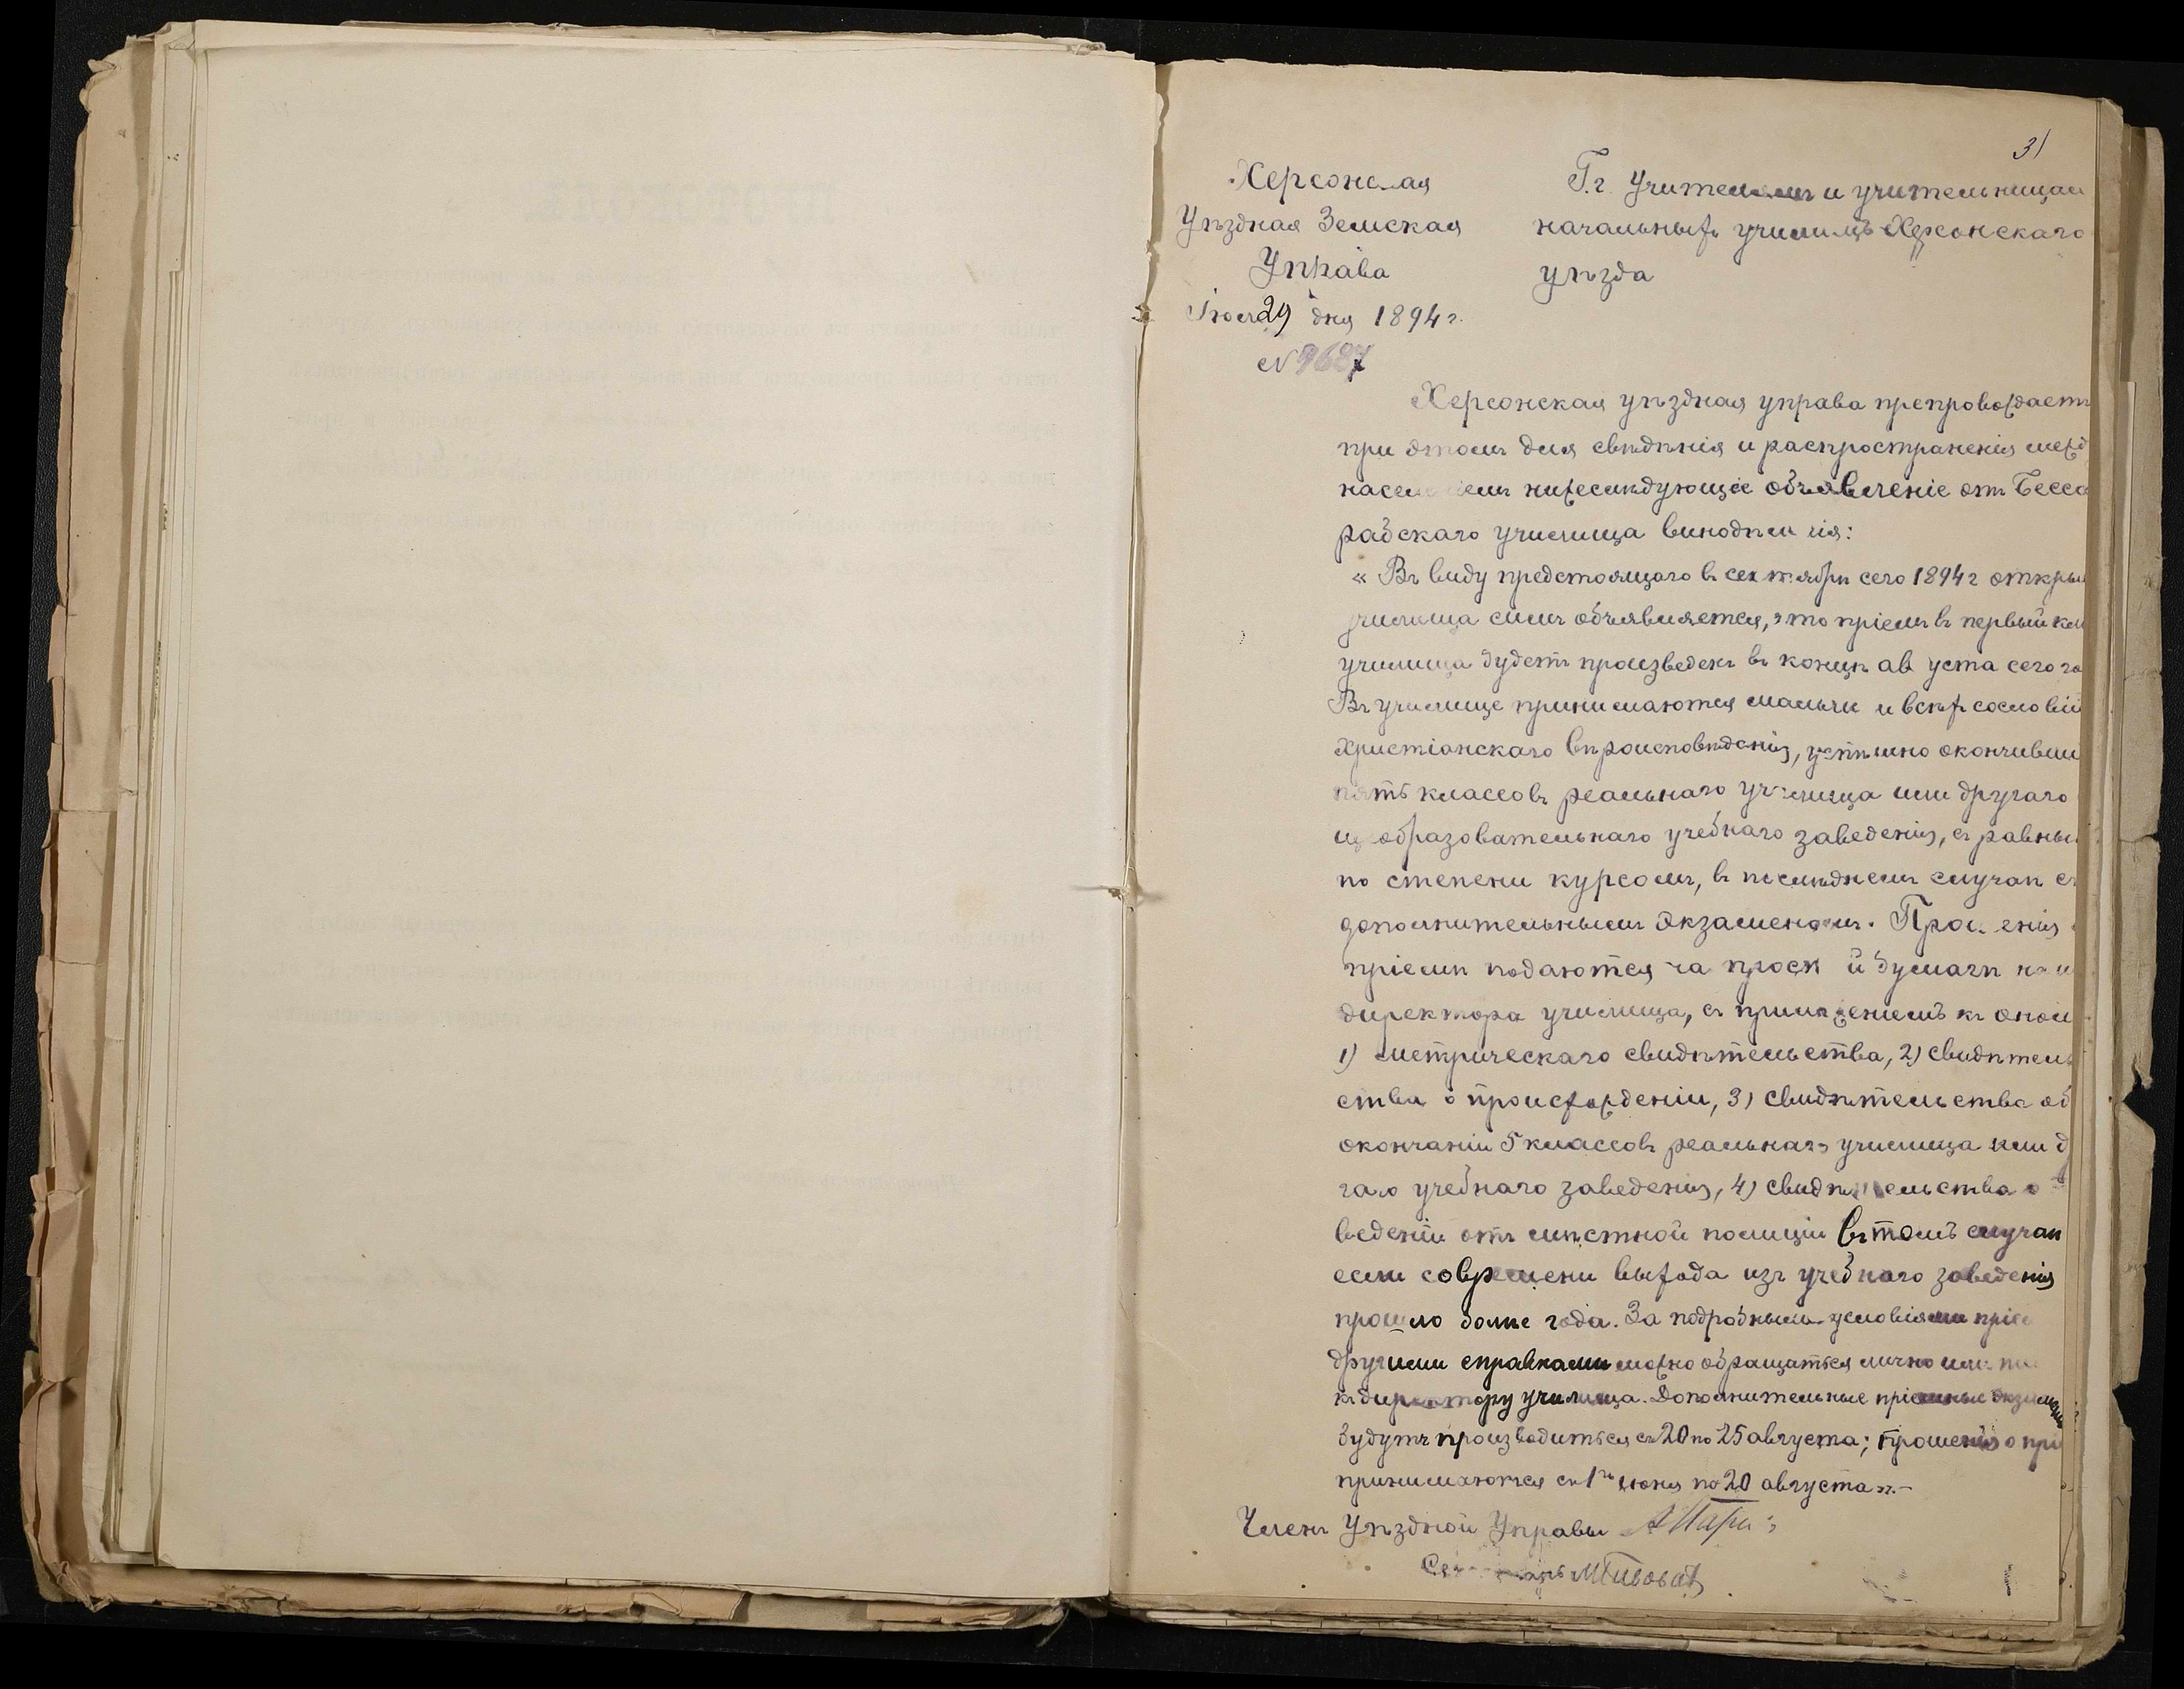 31
Херсонская
Уѣздная Земская
Управа
Іюля 29 дня 1894 г.
№ 9687
Г.г. Учителямъ и учительницам
начальныхъ училищъ Херсонскаго
уѣзда
Херсонская уѣздная управа препровождаетъ
при этомъ для свѣдѣнія и распространенія межд
населеніемъ нижеслѣдующее объявленіе отъ Бесса
рабскаго училища винодѣлія:
« Въ виду предстоящаго въ сентябрѣ сего 1894 г откры
училища симъ объявляется, что пріемъ въ первый кл
училища будетъ произведенъ въ концѣ августа сего го
Въ училище принимаются мальчики всѣхъ сословій
христіанскаго вѣроисповѣданія, успѣшно окончивши
пять классовъ реальнаго училища или другаго
щеобразовательнаго учебнаго заведенія, съ равны
по степени курсомъ, въ послѣднемъ случаѣ съ
дополнительнымъ экзаменомъ. Прошенія
пріемѣ подаются на простой бумагѣ на и
директора училища, съ приложеніемъ къ оном
1) метрическаго свидѣтельства, 2) свидѣтель
ства о происхожденіи, 3) свидѣтельства об
окончаніи 5 классовъ реальнаго училища или д
гаго учебнаго заведенія, 4) свидѣтельства о
веденіи отъ мѣстной полиціи въ томъ случаѣ
если со времени выхода изъ учебнаго заведенія
прошло болѣе года. За подробными условіями пріем
другими справками можно обращаться лично или
къ директору училища. Дополнительные пріемные экзамены
будутъ производиться съ 20 по 25 августа; прошенія о прі
принимаются съ 1го іюня по 20 августа ».–
Членъ Уѣздной Управы
Секретарь